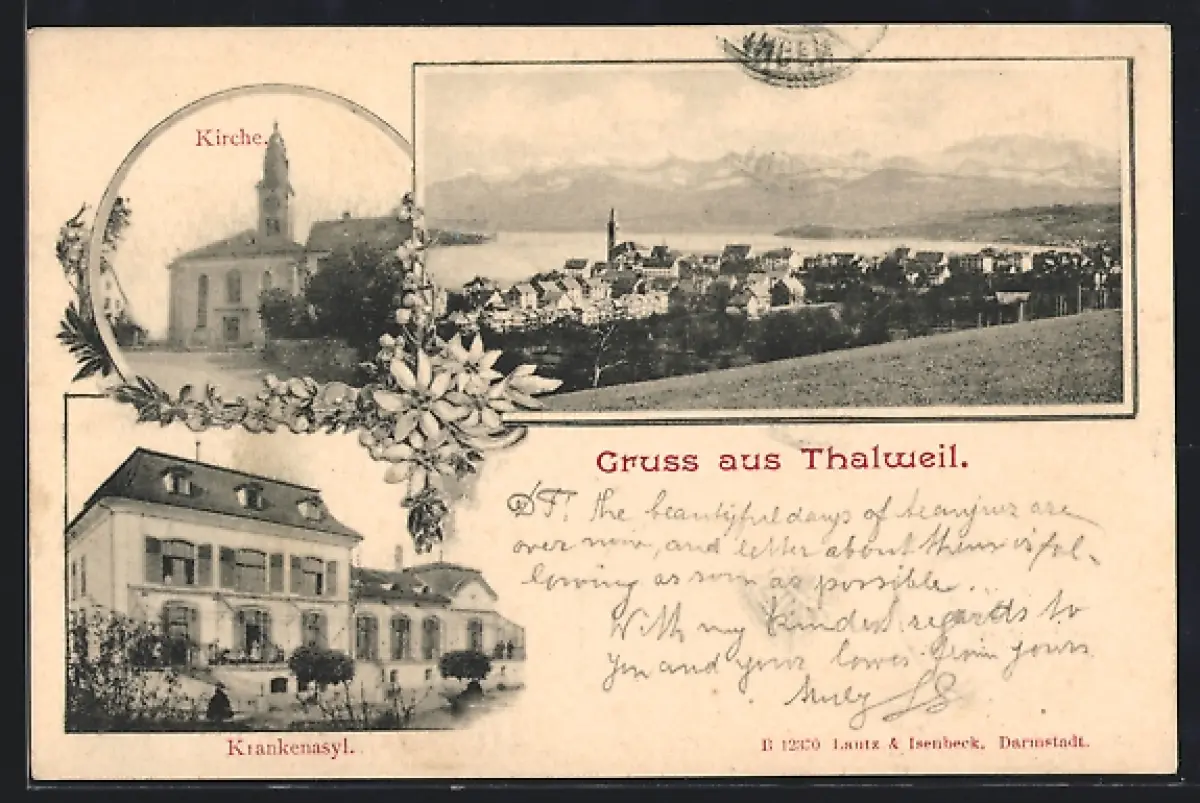 Kirche.
Gruss aus Thalweil.
The beautyful days of are
over now, and letter about them is fol-
lowing as soon as possible...
With my kindest regards to
you and your yours
truly
Krankenasyl.
B 12370 Lautz & Isenbeck, Darmstadt.